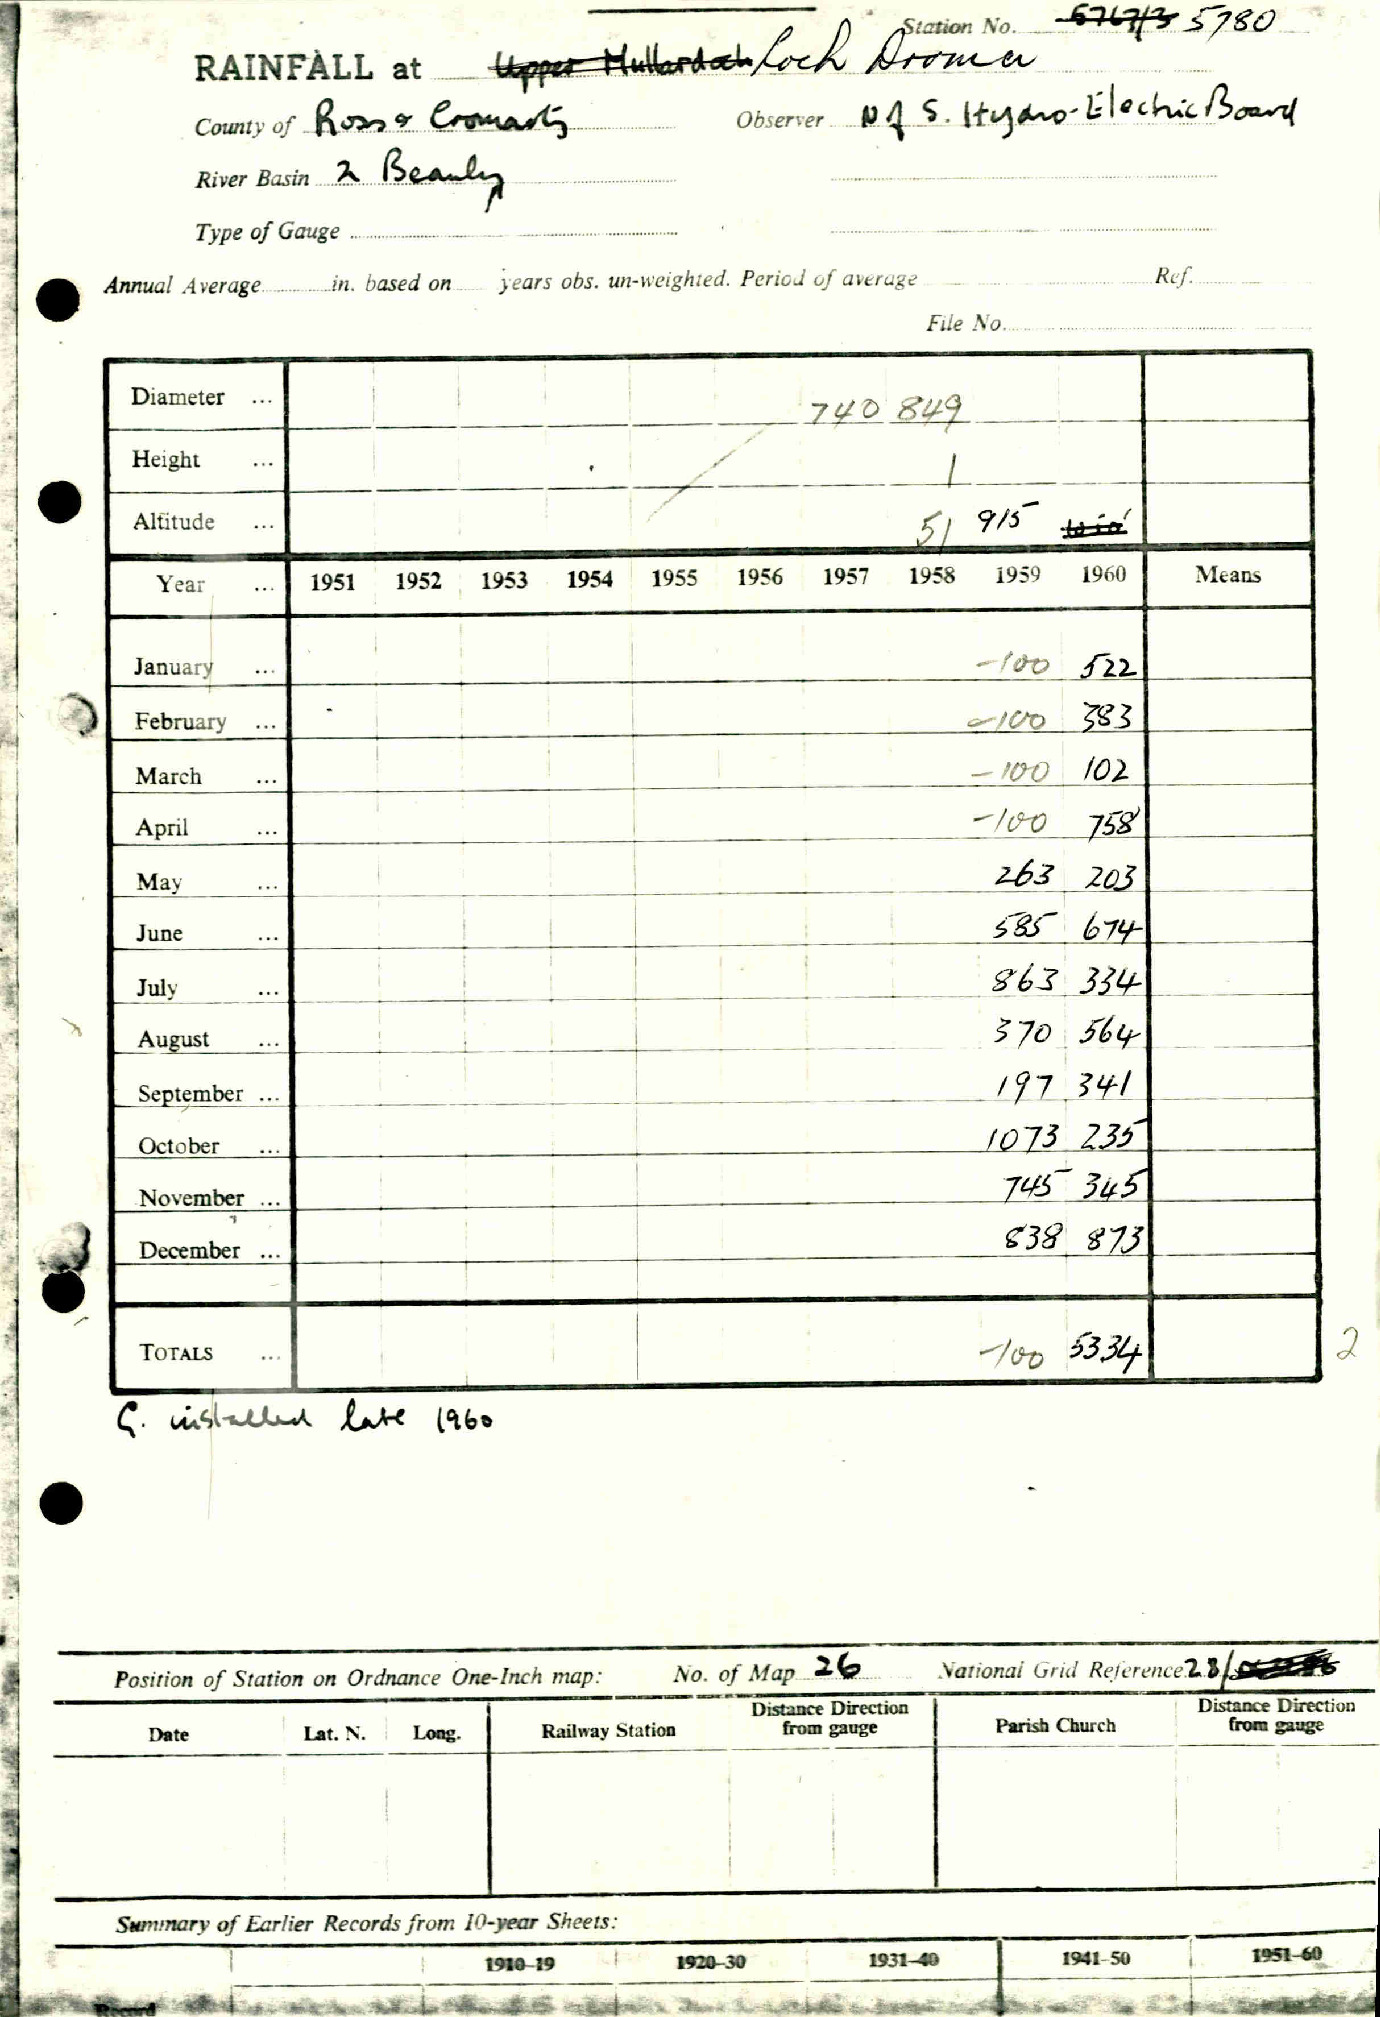 Station No. 5767/3 5780
RAINFALL at Upper Mullardoch Loch Droma
County of Ross & Cromarty Observer N of S. Hydro-Electric Board
River Basin 2 Beauly
Type of Gauge
Annual Average in. based on years obs. un-weighted. Period of average Ref.
File No.
Diameter ... 740 849
Height ... 1
Altitude ... 51 915
Year ... 1951 1952 1953 1954 1955 1956 1957 1958 1959 1960 Means
January ... -100 522
February ... -100 383
March ... -100 102
April ... -100 758
May ... 263 203
June ... 585 674
July ... 863 334
August ... 370 564
September ... 197 341
October ... 1073 235
November ... 745 345
December ... 838 873
TOTALS ... -100 5334 2
G. installed late 1960
Position of Station on Ordnance One-Inch map: No. of Map 26 National Grid Reference 28/
Date Lat. N. Long. Railway Station Distance Direction from gauge Parish Church Distance Direction from gauge
Summary of Earlier Records from 10-year Sheets:
1910-19 1920-30 1931-40 1941-50 1951-60
Record